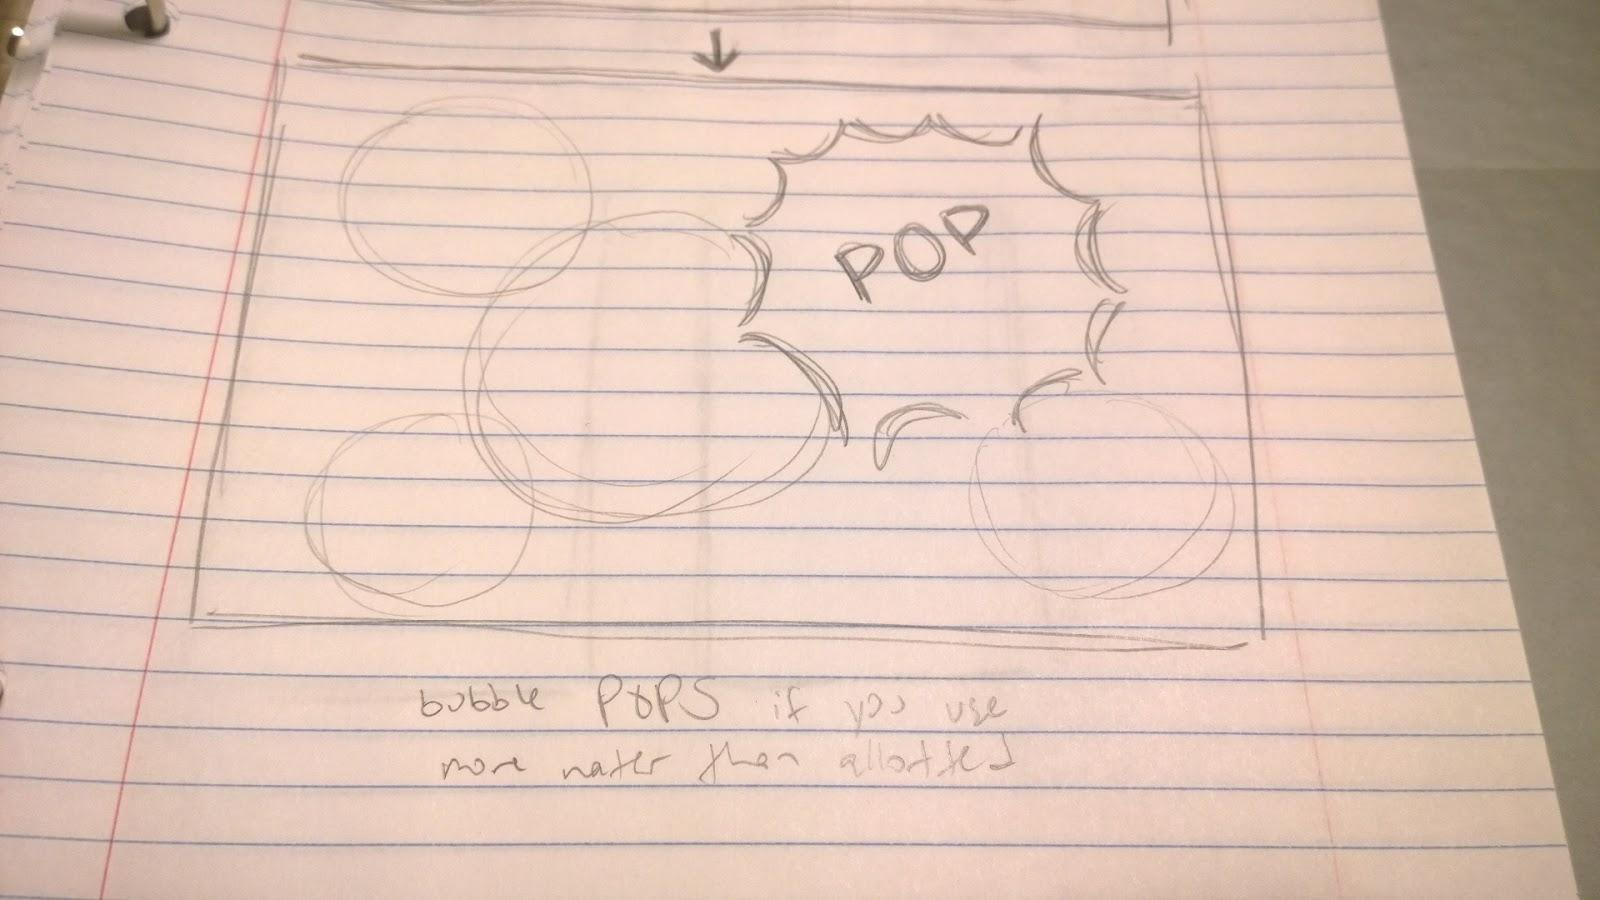 POP
bubble POPS if you use
more water than allotted